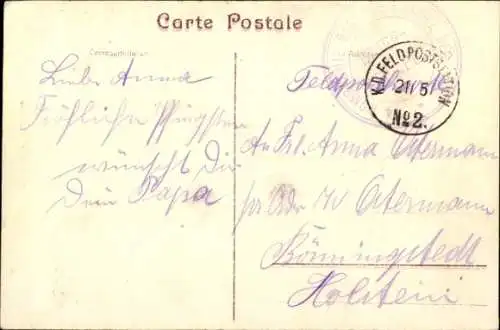 Carte Postale
Correspondance
Liebe Anna
Fröhliche Pfingsten
wünscht Dir
Dein Papa
Feldpostkarte
K.D. FELDPOSTSTATION
21/5
No 2.
An Frl. Anna Ostermann
Ostermann
Bönningstedt
Holstein